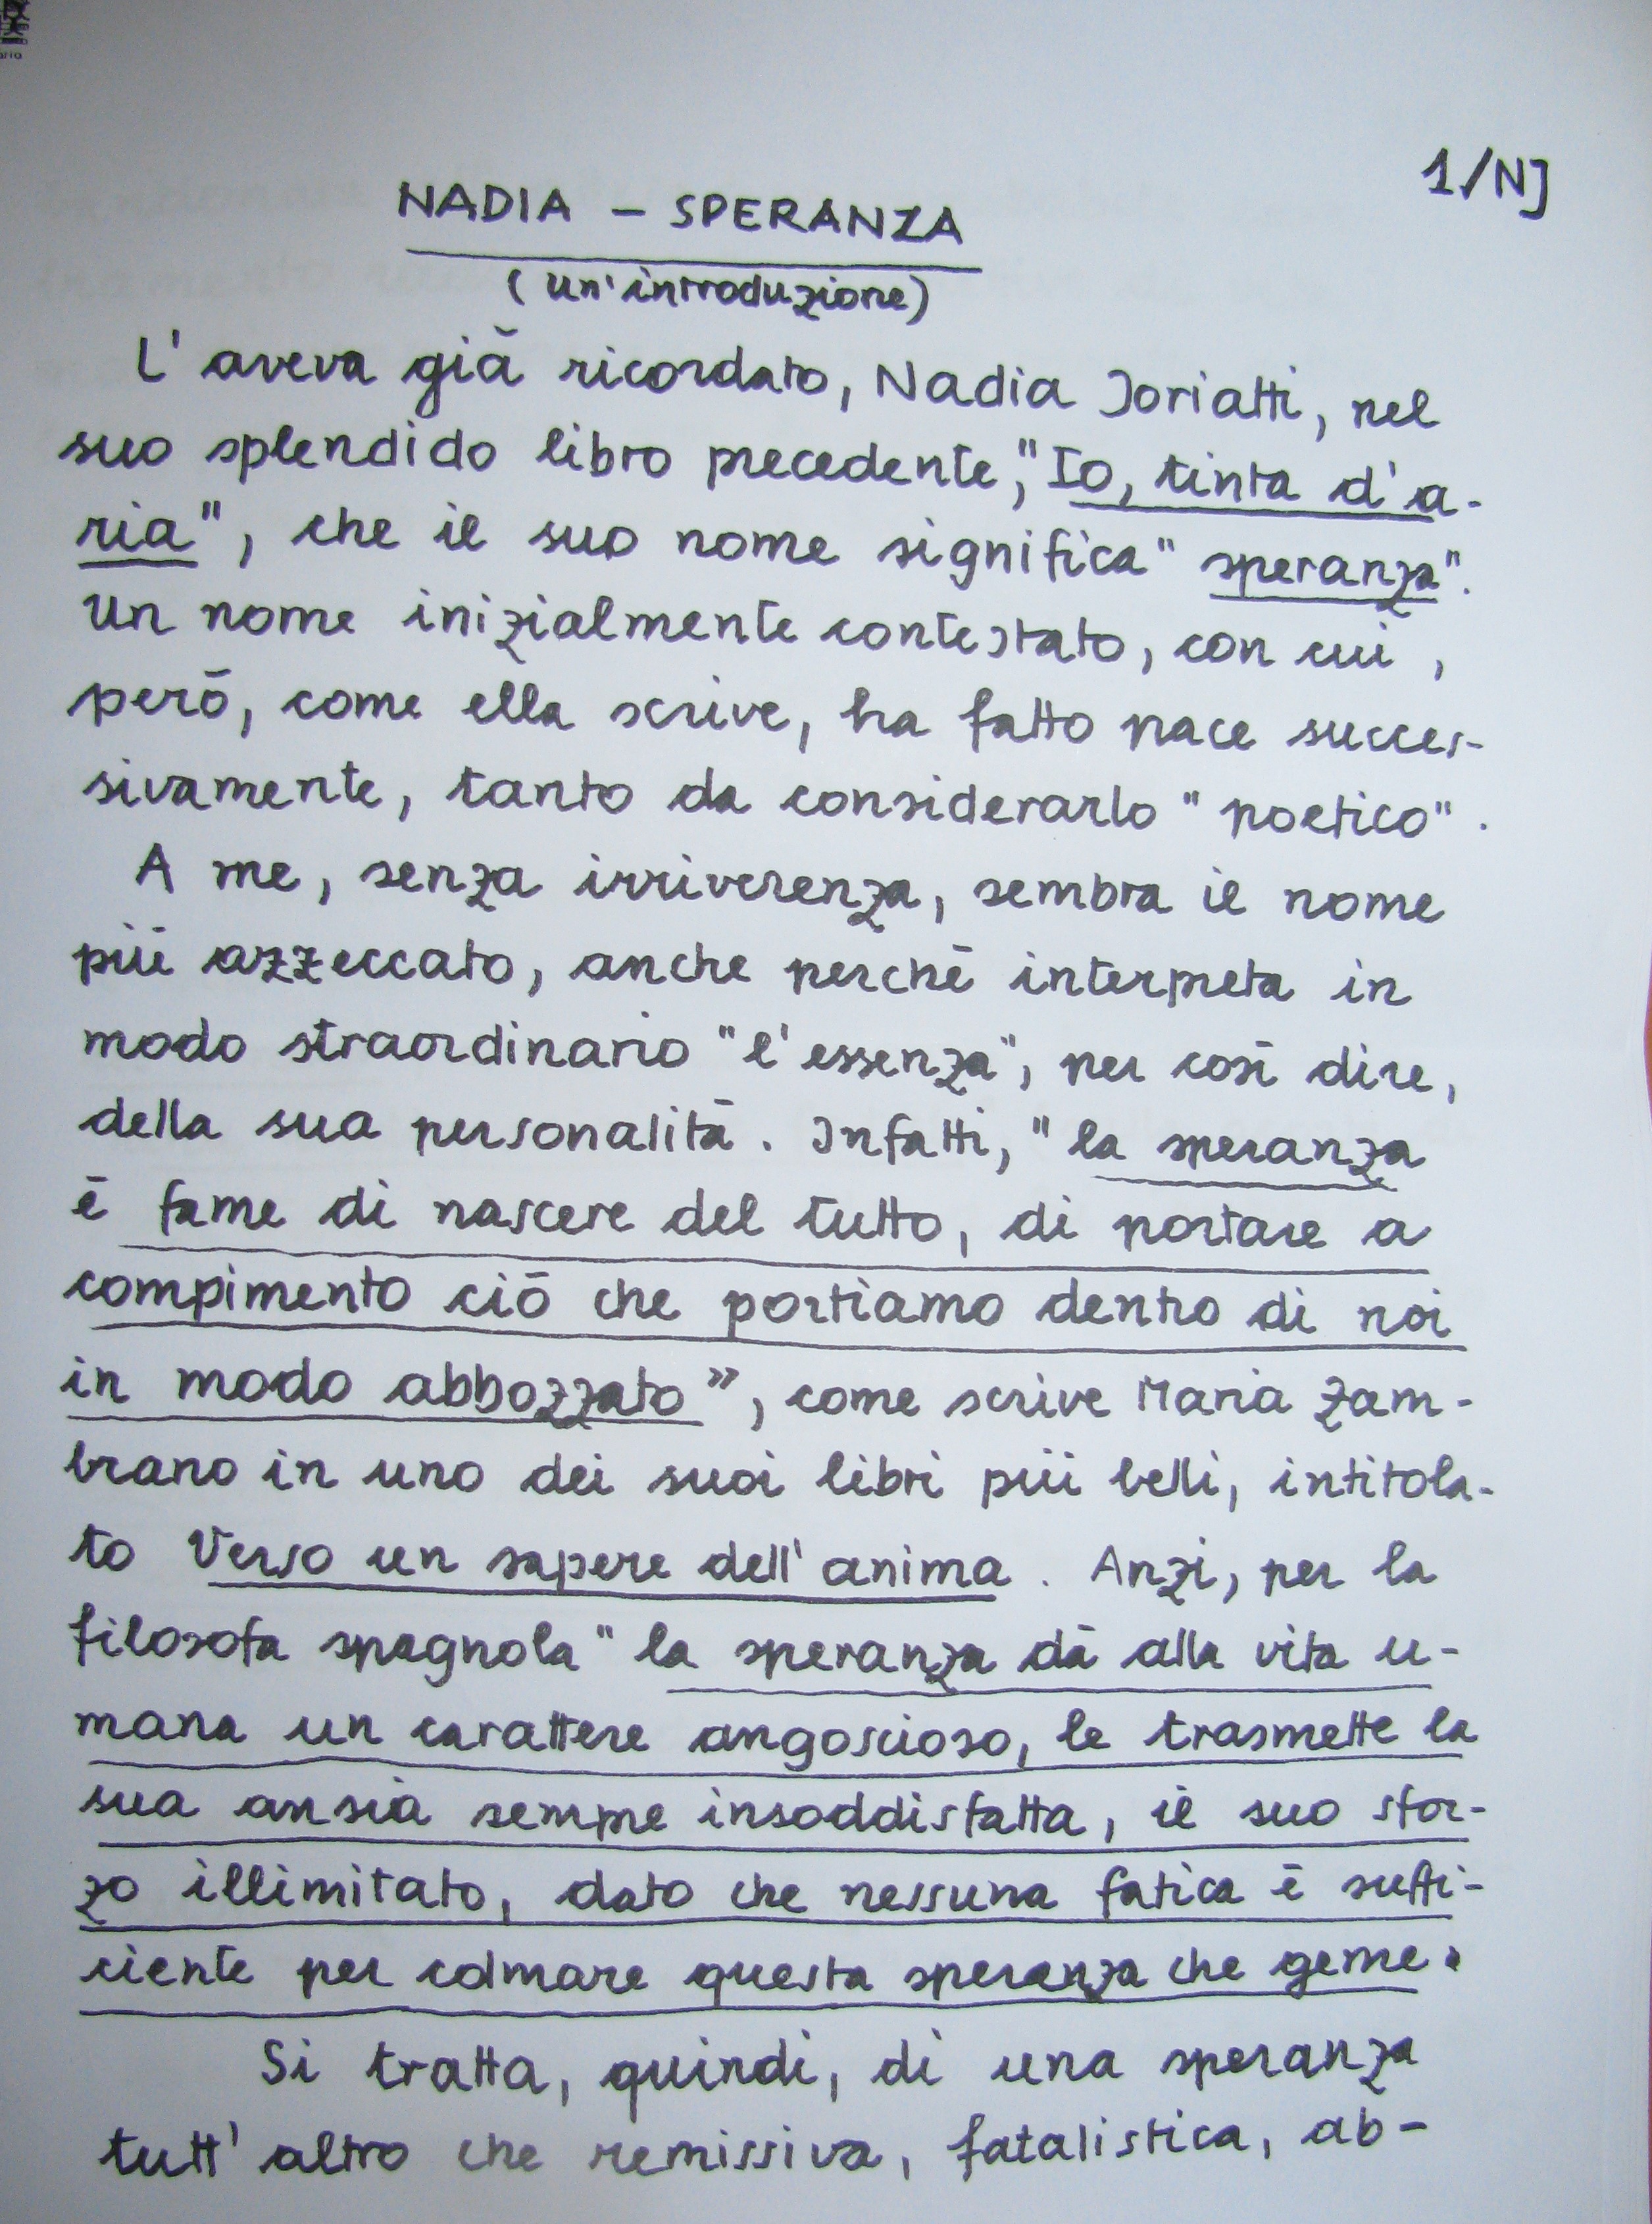 ario
1/NJ
NADIA - SPERANZA
(un'introduzione)
L'aveva già ricordato, Nadia Joriatti, nel
suo splendido libro precedente, "Io, tinta d'a-
ria", che il suo nome significa "speranza".
Un nome inizialmente contestato, con cui,
però, come ella scrive, ha fatto pace succes-
sivamente, tanto da considerarlo "poetico".
A me, senza irriverenza, sembra il nome
più azzeccato, anche perché interpreta in
modo straordinario "l'essenza", per così dire,
della sua personalità. Infatti, "la speranza
è fame di nascere del tutto, di portare a
compimento ciò che portiamo dentro di noi
in modo abbozzato", come scrive Maria Zam-
brano in uno dei suoi libri più belli, intitola-
to Verso un sapere dell'anima. Anzi, per la
filosofa spagnola "la speranza dà alla vita u-
mana un carattere angoscioso, le trasmette la
sua ansia sempre insoddisfatta, il suo sfor-
zo illimitato, dato che nessuna fatica è suffi-
ciente per colmare questa speranza che geme.
Si tratta, quindi, di una speranza
tutt'altro che remissiva, fatalistica, ab-